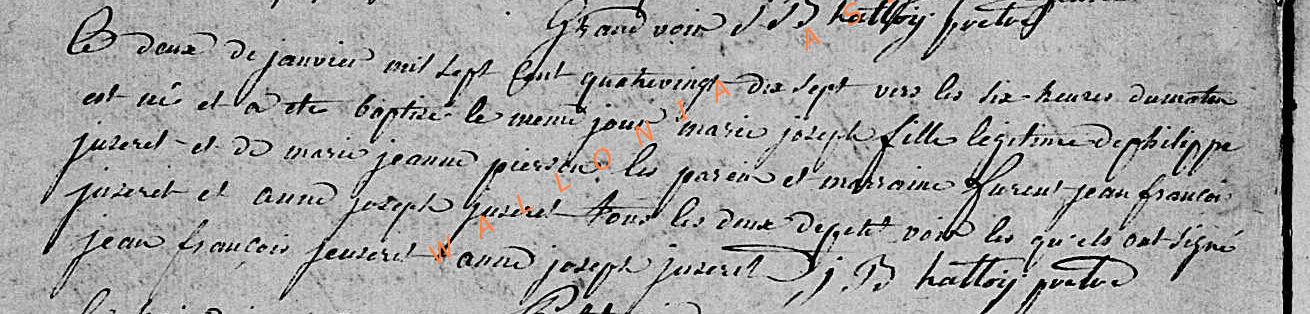 Grand voir J B hattoy pretre
Le deux de janvier mil sept cent quatrevingt dix sept vers les six heures dumatin
est né et a été baptisé le meme jour marie joseph fille legitime dephilippe
juseret et de marie jeanne pierson les parein et marraine furent jean françois
juseret et anne joseph juseret tous les deux depetit voir les qu'els ont signé
jean françois jeuseret anne joseph juseret J B hattoy pretre
WALLONIA AS